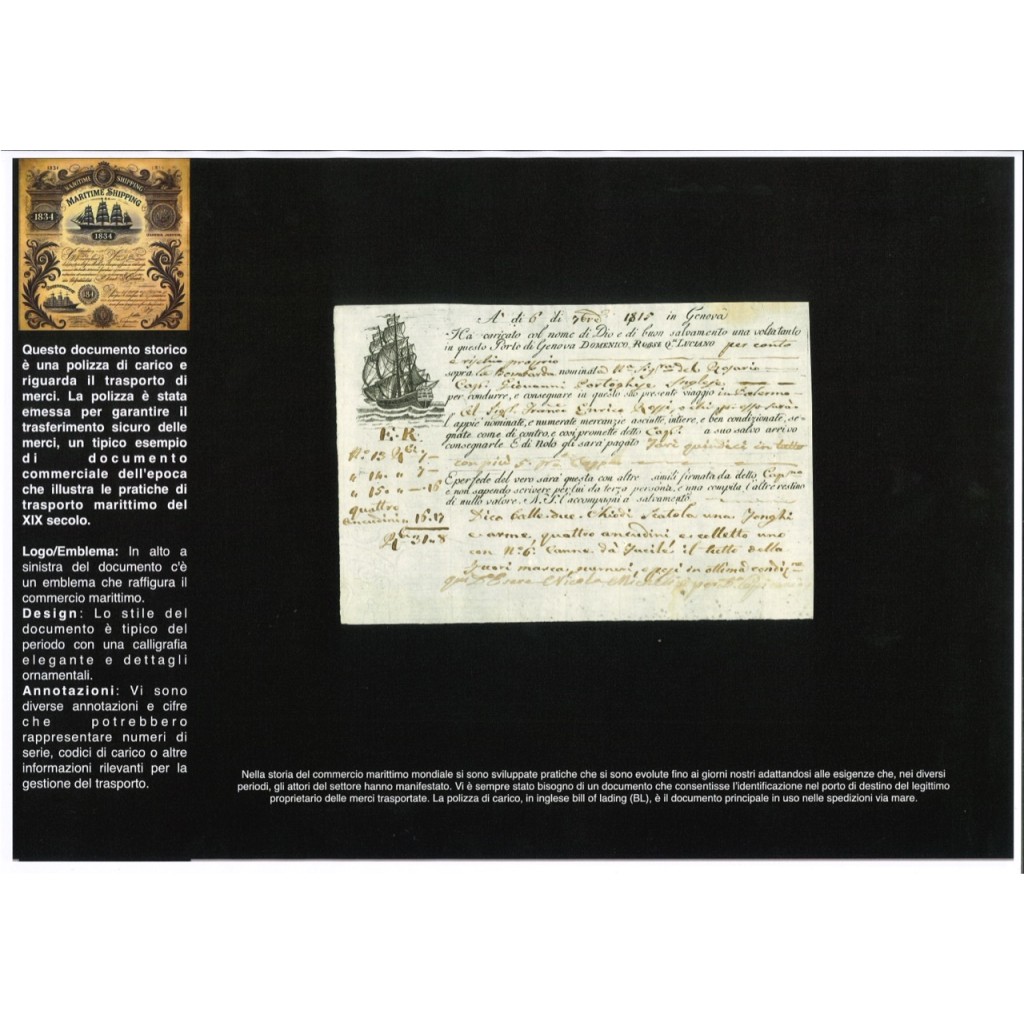 MARITIME SHIPPING
MARITIME SHIPPING
1834
1834
Questo documento storico
è una polizza di carico e
riguarda il trasporto di
merci. La polizza è stata
emessa per garantire il
trasferimento sicuro delle
merci, un tipico esempio
di documento
commerciale dell'epoca
che illustra le pratiche di
trasporto marittimo del
XIX secolo.
Logo/Emblema: In alto a
sinistra del documento c'è
un emblema che raffigura il
commercio marittimo.
Design: Lo stile del
documento è tipico del
periodo con una calligrafia
elegante e dettagli
ornamentali.
Annotazioni: Vi sono
diverse annotazioni e cifre
che potrebbero
rappresentare numeri di
serie, codici di carico o altre
informazioni rilevanti per la
gestione del trasporto.
A' di 6' di 7bre 1815 in Genova
Ha caricato col nome di Dio e di buon salvamento una volta tanto
in questo Porto di Genova DOMENICO, ROSSE Q.m LUCIANO per conto
e rischio proprio
sopra la Bombarda nominata N.a Sig.ra del Rosario
Cap. Giovanni Inglese
per condurre, e consegnare in questo suo presente viaggio in Palermo
Al Sig. Enrico Rossi
l'appiè nominate, e numerate mercanzie asciutte, intiere, e ben condizionate, se-
gnate come di contro, e così promette detto Cap. a suo salvo arrivo
consegnarle. E di Nolo gli sarà pagato in tutto
E per fede del vero sarà questa con altre simili firmata da detto
e non sapendo scrivere per lui da terza persona, e una compita l'altre restino
di nullo valore. A. S. l'accompagni a salvamento
E.R.
N.o 13 7
" 14 " 7
" 15 "
quattro
15.17
31 8
Dico Balle due Scatola una
e arme, quattro ancudini
con N.o 6 Canne da Fucile il tutto della
in ottima
Nella storia del commercio marittimo mondiale si sono sviluppate pratiche che si sono evolute fino ai giorni nostri adattandosi alle esigenze che, nei diversi
periodi, gli attori del settore hanno manifestato. Vi è sempre stato bisogno di un documento che consentisse l'identificazione nel porto di destino del legittimo
proprietario delle merci trasportate. La polizza di carico, in inglese bill of lading (BL), è il documento principale in uso nelle spedizioni via mare.